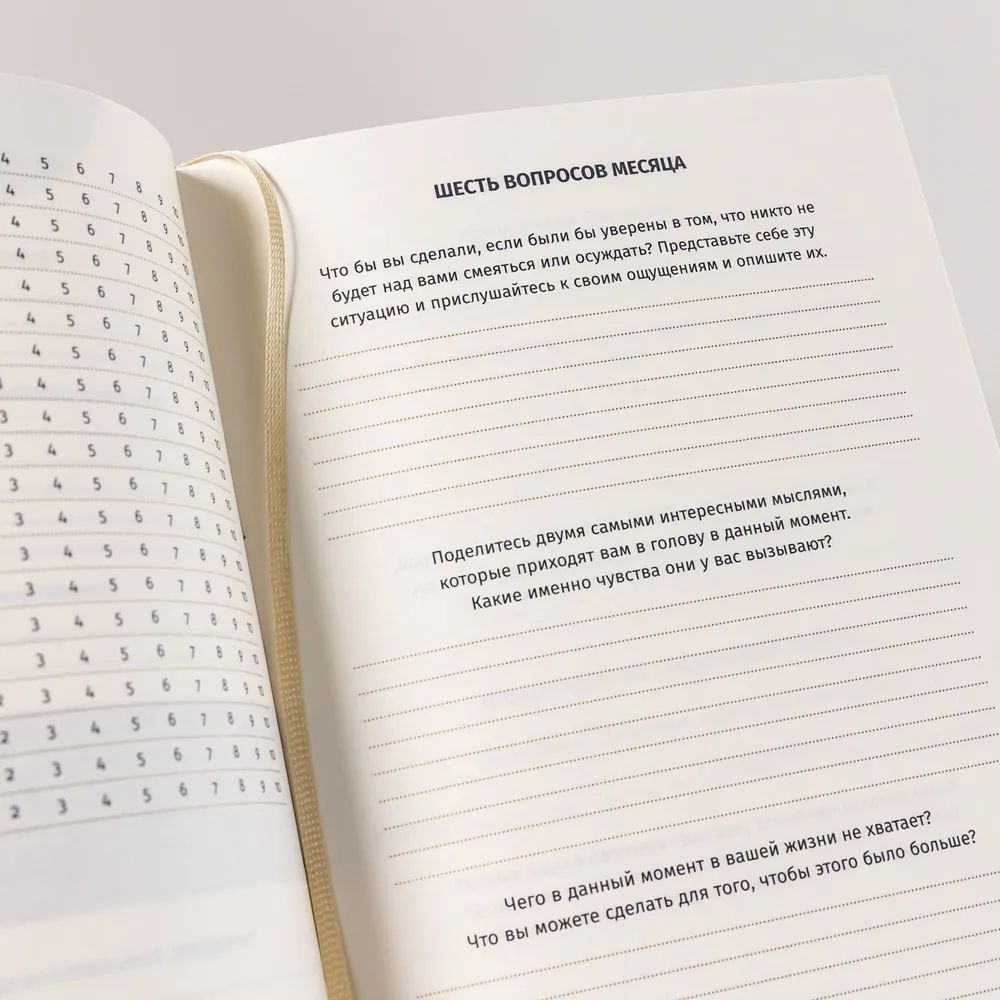 4 5 6 7 8 9 10
4 5 6 7 8 9 10
4 5 6 7 8 9 10
4 5 6 7 8 9 10
4 5 6 7 8 9 10
4 5 6 7 8 9 10
4 5 6 7 8 9 10
4 5 6 7 8 9 10
3 4 5 6 7 8 9 10
3 4 5 6 7 8 9 10
3 4 5 6 7 8 9 10
3 4 5 6 7 8 9 10
3 4 5 6 7 8 9 10
3 4 5 6 7 8 9 10
3 4 5 6 7 8 9 10
3 4 5 6 7 8 9 10
3 4 5 6 7 8 9 10
2 3 4 5 6 7 8 9 10
2 3 4 5 6 7 8 9 10
2 3 4 5 6 7 8 9 10
ШЕСТЬ ВОПРОСОВ МЕСЯЦА
Что бы вы сделали, если были бы уверены в том, что никто не
будет над вами смеяться или осуждать? Представьте себе эту
ситуацию и прислушайтесь к своим ощущениям и опишите их.
Поделитесь двумя самыми интересными мыслями,
которые приходят вам в голову в данный момент.
Какие именно чувства они у вас вызывают?
Чего в данный момент в вашей жизни не хватает?
Что вы можете сделать для того, чтобы этого было больше?